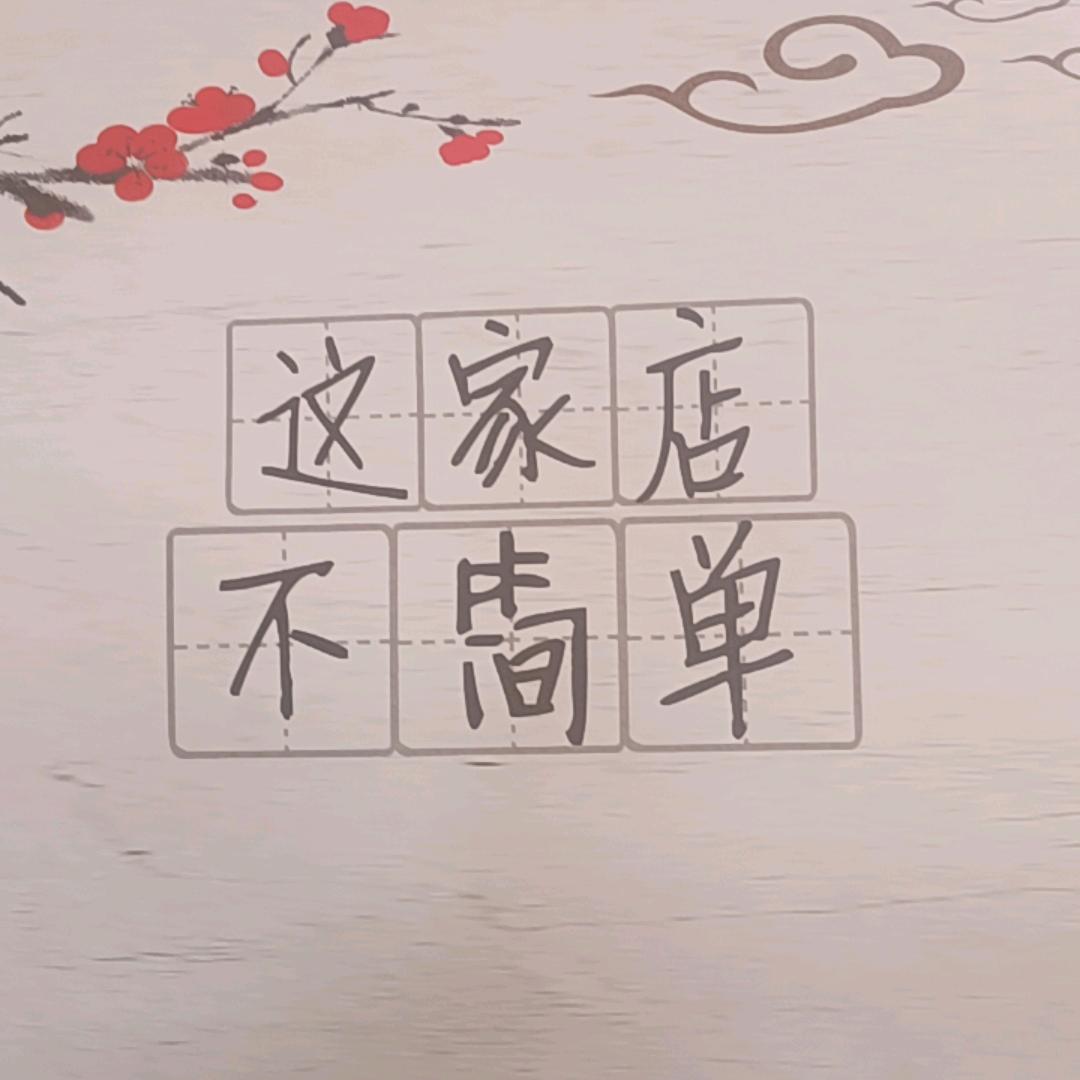 这家店
不简单